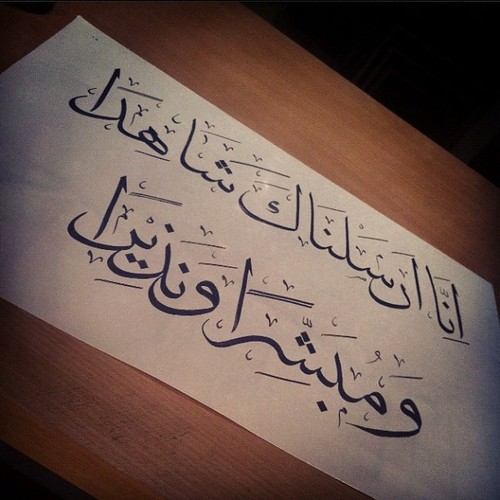 اِنَّا اَرْسَلْنَاكَ شَاهِدًا
وَمُبَشِّرًا وَنَذِيْرًا